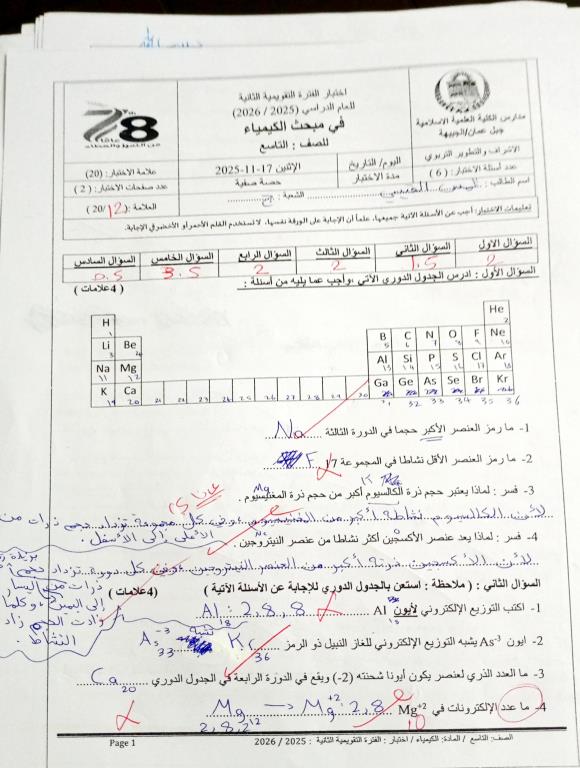 اختبار الفترة التقويمية الثانية
للعام الدراسي (2025 / 2026)
في مبحث الكيمياء
للصف : التاسع
مدارس الكلية العلمية الاسلامية
جبل عمان/الجبيهة
الاشراف والتطوير التربوي
78
عدد أسئلة الاختبار: ( 6 )
اليوم/ التاريخ
الإثنين 17-11-2025
علامة الاختبار: (20)
مدة الاختبار
حصة صفية
عدد صفحات الاختبار: ( 2 )
اسم الطالب :
الشعبة :
العلامة: (20/12
تعليمات الاختبار: أجب عن الأسئلة الآتية جميعها، علماً أن الإجابة على الورقة نفسها، لا تستخدم القلم الأحمر أو الأخضر في الإجابة.
السؤال الاول السؤال الثاني السؤال الثالث السؤال الرابع السؤال الخامس السؤال السادس
2 1.5 2 2 3.5 0.5
السؤال الأول : ادرس الجدول الدوري الآتي ،وأجب عما يليه من أسئلة :
(4علامات )
H He
1 2
Li Be B C N O F Ne
3 4 5 6 7 8 9
Na Mg Al Si P S Cl Ar
11 12 13 14 15 16 17 18
K Ca Ga Ge As Se Br Kr
19 20 21 22 23 24 25 26 27 28 29 30 31 32 33 34 35 36
1- ما رمز العنصر الأكبر حجما في الدورة الثالثة Na
2- ما رمز العنصر الأقل نشاطا في المجموعة 17 F
3- فسر : لماذا يعتبر حجم ذرة الكالسيوم أكبر من حجم ذرة المغنيسيوم .
Mg
لأن الكالسيوم نشاطة أكبر من المغنيسيوم وفي كل مجموعة تزداد حجم ذرات من
الأعلى إلى الأسفل.
4- فسر : لماذا يعد عنصر الأكسجين أكثر نشاطا من عنصر النيتروجين .
لأن الأكسجين ذرية أكبر من العنصر النيتروجين وفي كل دورة تزداد حجم
ذرات من اليسار
إلى اليمين وكلما
زادت الحجم زاد
النشاط.
السؤال الثاني : ( ملاحظة : استعن بالجدول الدوري للإجابة عن الأسئلة الآتية )
(4علامات )
1- اكتب التوزيع الإلكتروني لأيون Al Al : 2,8,8
13 18
2- ايون As-3 يشبه التوزيع الإلكتروني للغاز النبيل ذو الرمز Kr
36
As-3
33
3- ما العدد الذري لعنصر يكون أيونا شحنته (2-) ويقع في الدورة الرابعة في الجدول الدوري Ca
20
4- ما عدد الإلكترونات في Mg+2 Mg → Mg+2: 2,8
2,8,2 12 10
Page 1
الصف: التاسع / المادة: الكيمياء / اختبار : الفترة التقويمية الثانية : 2025 / 2026